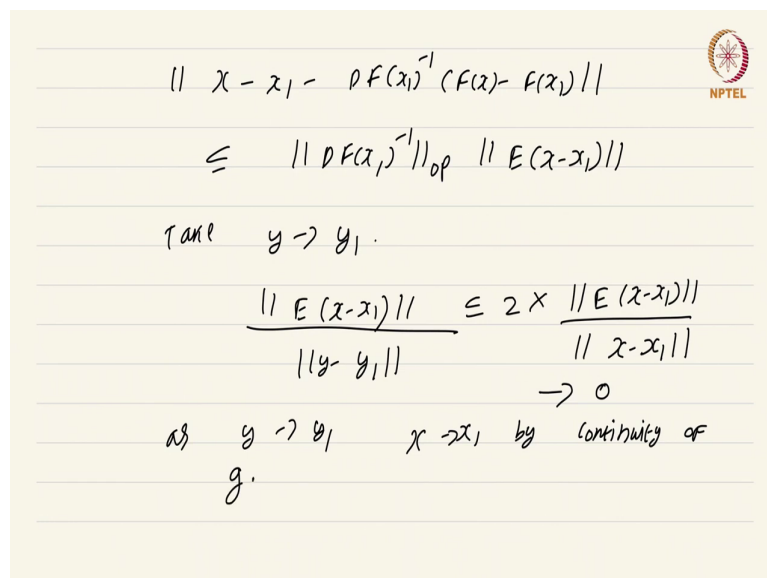 || x - x₁ - DF(x₁)⁻¹ (F(x) - F(x₁)) ||
NPTEL
≤ || DF(x₁)⁻¹ ||op || E(x-x₁) ||
Take y -> y₁.
|| E(x-x₁) || / || y - y₁ || ≤ 2 × || E(x-x₁) || / || x-x₁ ||
-> 0
as y -> y₁ x -> x₁ by continuity of
g.